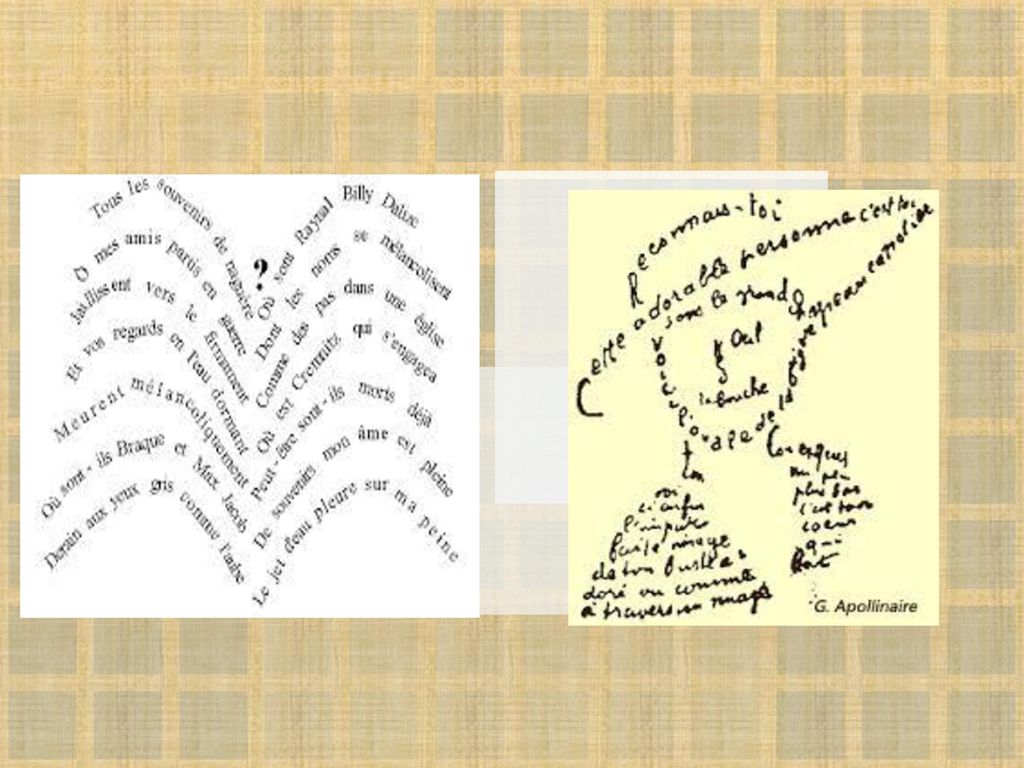 Tous les souvenirs de naguère
O mes amis partis en guerre
Jaillissent vers le firmament
Et vos regards en l'eau dormant
Meurent mélancoliquement
Où sont-ils Braque et Max Jacob
Derain aux yeux gris comme l'aube
?
Où sont Raynal Billy Dalize
Dont les noms se mélancolisent
Comme des pas dans une église
Où est Cremnitz qui s'engagea
Peut-être sont-ils morts déjà
De souvenirs mon âme est pleine
Le jet d'eau pleure sur ma peine
Reconnais-toi
Cette adorable personne c'est toi
sous le grand chapeau canotier
Oeil
la bouche
Voici l'ovale de ta figure
ton
cou
un peu
plus bas
c'est ton
coeur
qui
bat
ci enfin
l'imparfaite image
de ton buste adoré
vu comme
à travers un nuage
G. Apollinaire